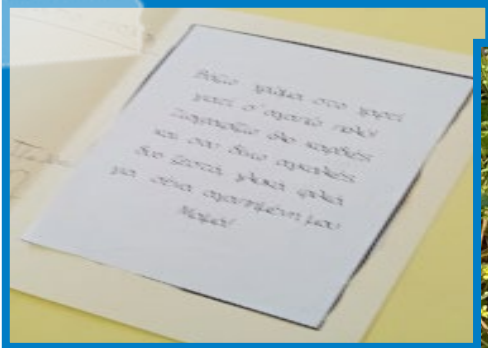 Βάζω χρώμα στο χαρτί
γιατί σ' αγαπώ πολύ!
Ζωγραφίζω καρδιές
και σου δίνω αγκαλιές
δυο ζεστά γλυκά φιλιά
για σένα αγαπημένη μου
Μαμά!